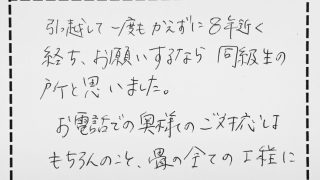 引越して一度もかえずに8年近く
経ち、お願いするなら同級生の
所と思いました。
お電話での奥様のご対応は
もちろんのこと、畳の全ての工程に